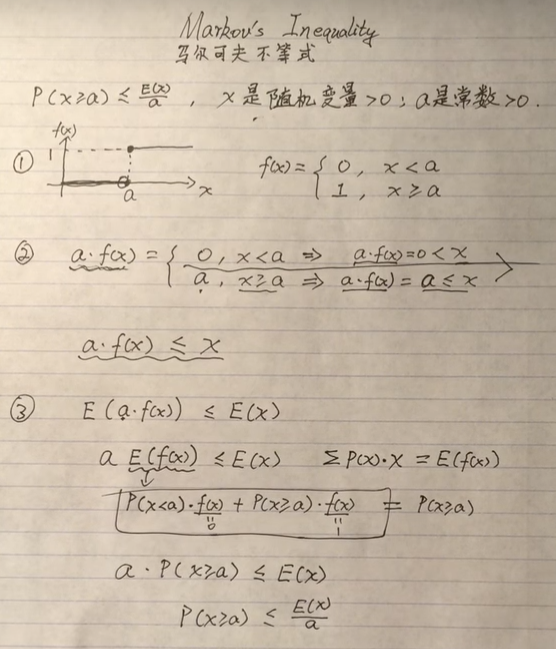 Markov's Inequality
马尔可夫不等式
P(x≥a) ≤ E(x)/a , x是随机变量>0; a是常数>0.
① f(x) 1 a x f(x) = { 0, x<a
1, x≥a
② a·f(x) = { 0, x<a ⇒ a·f(x)=0<x
a, x≥a ⇒ a·f(x) = a ≤ x
a·f(x) ≤ x
③ E(a·f(x)) ≤ E(x)
a E(f(x)) ≤ E(x) ΣP(x)·x = E(f(x))
P(x<a)·f(x) + P(x≥a)·f(x) = P(x≥a)
=0 =1
a·P(x≥a) ≤ E(x)
P(x≥a) ≤ E(x)/a